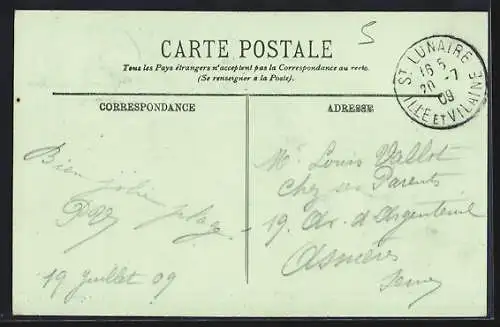 5
CARTE POSTALE
Tous les Pays étrangers n'acceptent pas la Correspondance au recto.
(Se renseigner à la Poste).
ST LUNAIRE
16 5
20 - 7
09
ILLE ET VILAINE
CORRESPONDANCE
Bien jolie plage
19 Juillet 09
ADRESSE
Mr Louis Vallot
Chez ses Parents
19. Av. d'Argenteuil
Asnières
Seine